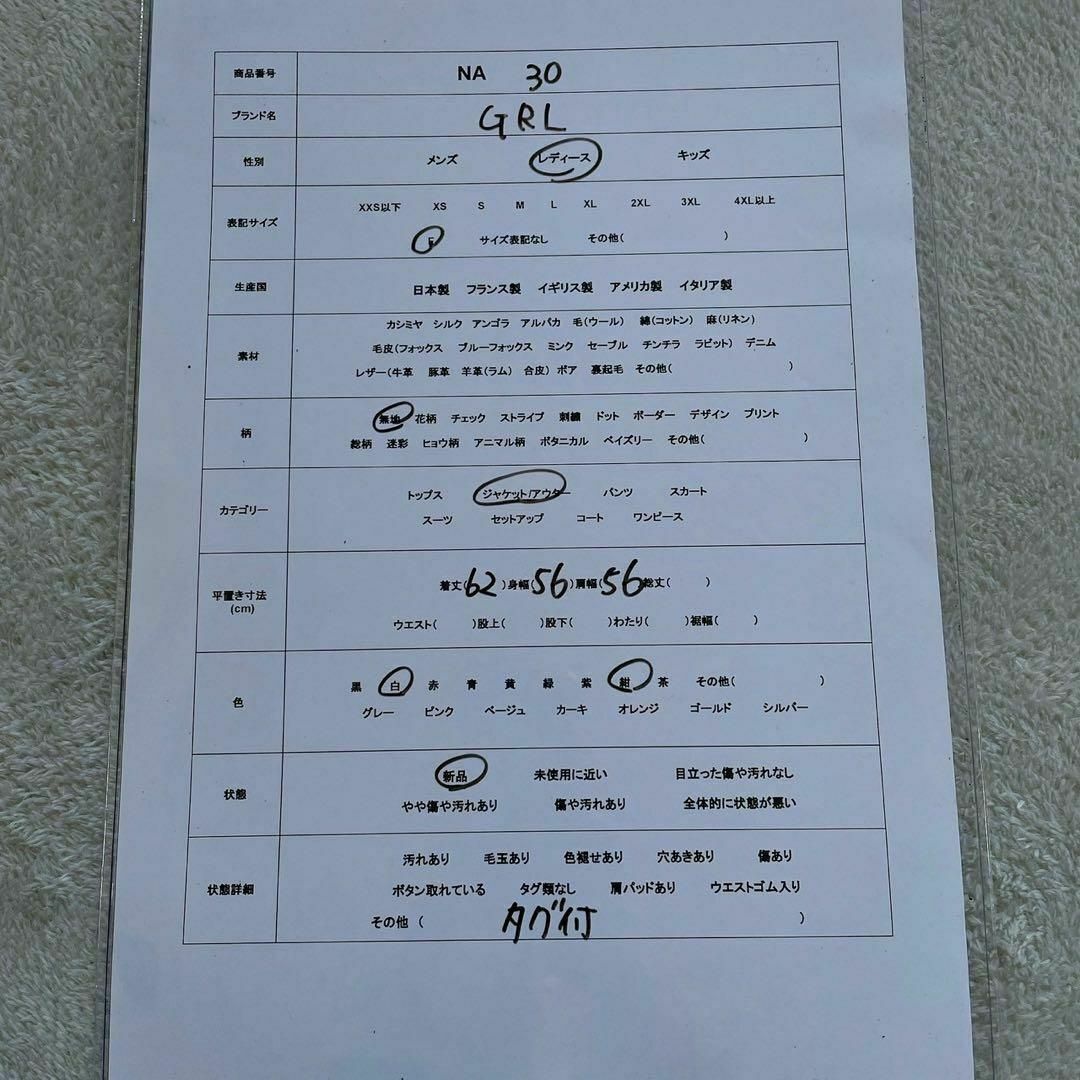 商品番号 NA 30
ブランド名 GRL
性別 メンズ レディース キッズ
表記サイズ XXS以下 XS S M L XL 2XL 3XL 4XL以上
F サイズ表記なし その他( )
生産国 日本製 フランス製 イギリス製 アメリカ製 イタリア製
素材 カシミヤ シルク アンゴラ アルパカ 毛(ウール) 綿(コットン) 麻(リネン)
毛皮(フォックス ブルーフォックス ミンク セーブル チンチラ ラビット) デニム
レザー(牛革 豚革 羊革(ラム) 合皮) ボア 裏起毛 その他( )
柄 無地 花柄 チェック ストライプ 刺繍 ドット ボーダー デザイン プリント
総柄 迷彩 ヒョウ柄 アニマル柄 ボタニカル ペイズリー その他( )
カテゴリー トップス ジャケット/アウター パンツ スカート
スーツ セットアップ コート ワンピース
平置き寸法
(cm)
着丈(62)身幅(56)肩幅(56 総丈( )
ウエスト( )股上( )股下( )わたり( )裾幅( )
色 黒 白 赤 青 黄 緑 紫 紺 茶 その他( )
グレー ピンク ベージュ カーキ オレンジ ゴールド シルバー
状態 新品 未使用に近い 目立った傷や汚れなし
やや傷や汚れあり 傷や汚れあり 全体的に状態が悪い
状態詳細 汚れあり 毛玉あり 色褪せあり 穴あきあり 傷あり
ボタン取れている タグ類なし 肩パッドあり ウエストゴム入り
その他 ( タグ付 )